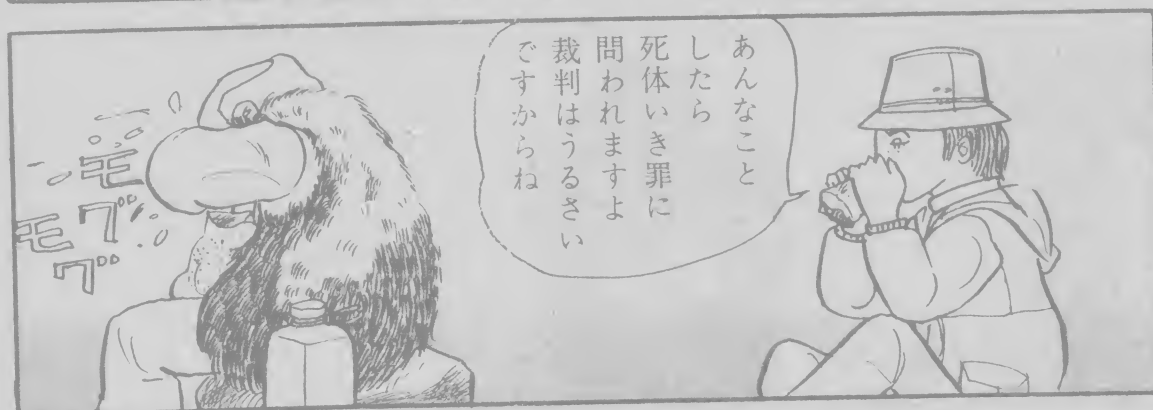 あんなこと
したら
死体いき罪に
問われますよ
裁判はうるさい
ですからね
モグ
モグ